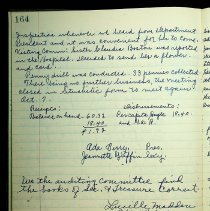 164
Inspection whenever we heard from Department
President and it was convenient for her to come.
Visiting Comm: Sister Blendia Boston was reported
in the Hospital. Decided to send her a flower
and card.
Penny drill was conducted. 33 pennies collected
There being no further business, the meeting
closed in Ritualistic form to meet again
Oct. 9.
Receipts: Disbursements:
Balance on hand 60.32
18.40
71.92
Ada Perry, Pres.
Jeanette Griffin Secy.
We the auditing Committee find
the books of Sec. & Treasure Correct.
Lucille Madden